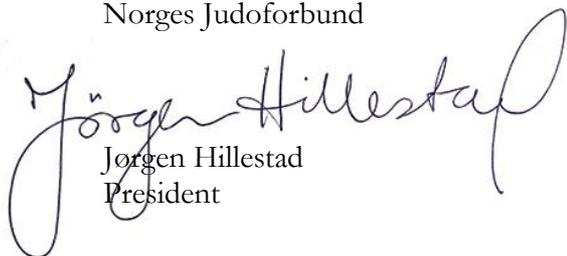 Norges Judoforbund
Jörgen Hillestad
Jørgen Hillestad
President